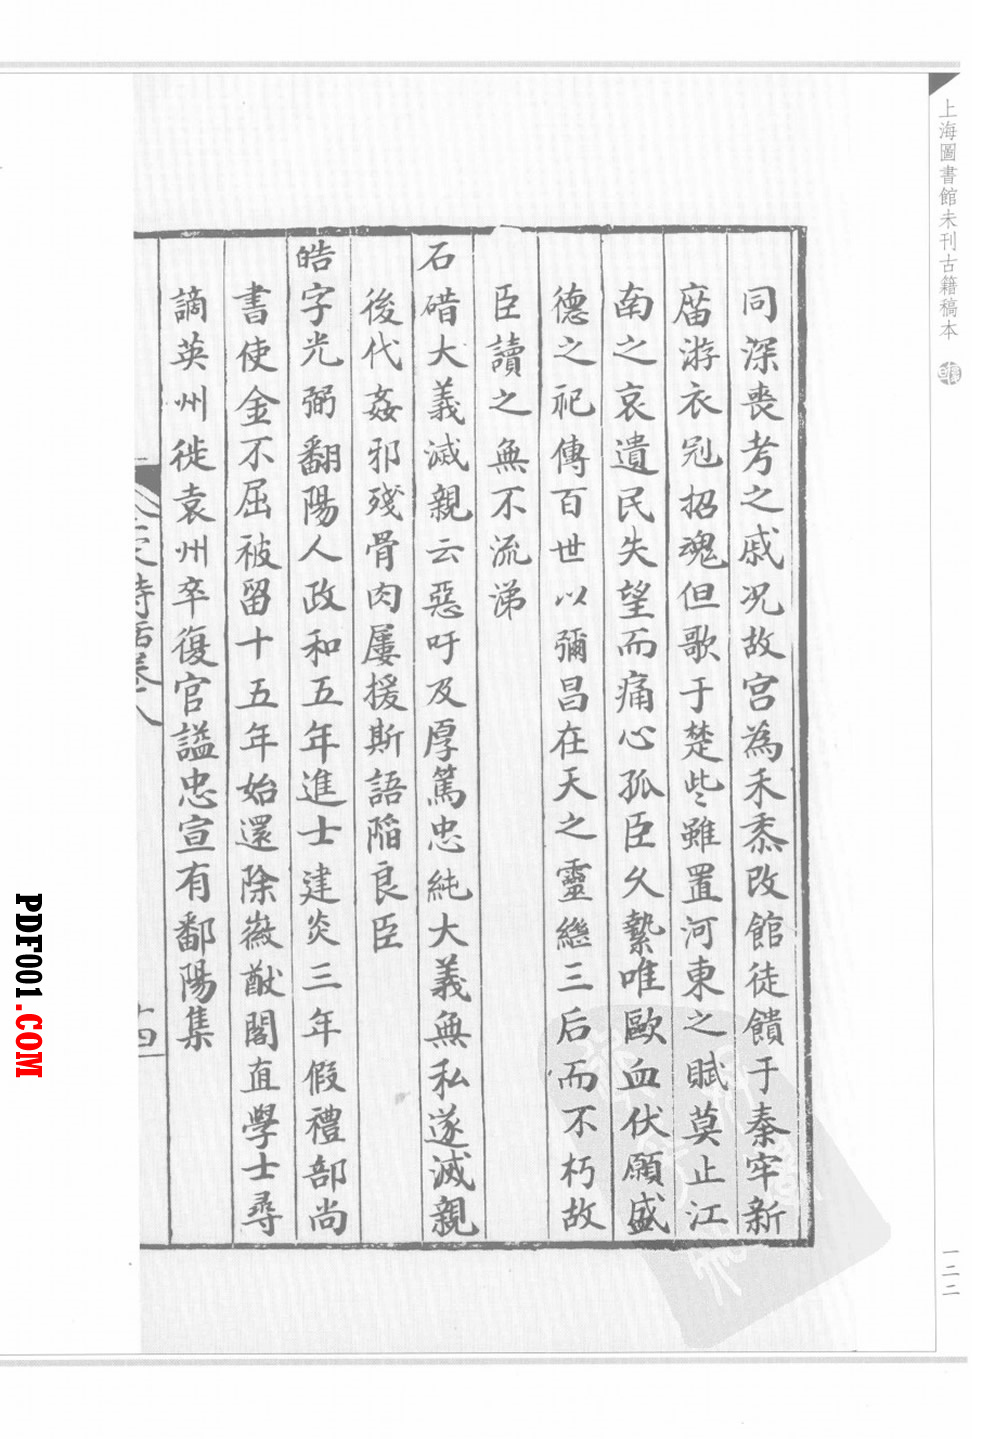 上海圖書館未刊古籍稿本
一二二
同深喪考之戚况故宫為禾黍改館徒饋于秦牢新
廇游衣冠招魂但歌于楚些雖置河東之賦莫止江
南之哀遺民失望而痛心孤臣久縶唯歐血伏願盛
德之祀傳百世以彌昌在天之靈繼三后而不朽故
臣讀之無不流涕
石碏大義滅親云惡吁及厚篤忠純大義無私遂滅親
後代姦邪殘骨肉屢援斯語陷良臣
皓字光弼翻陽人政和五年進士建炎三年假禮部尚
書使金不屈被留十五年始還除徽猷閣直學士尋
謫英州徙袁州卒復官謚忠宣有鄱陽集
詩話卷八
十四
PDF001.COM